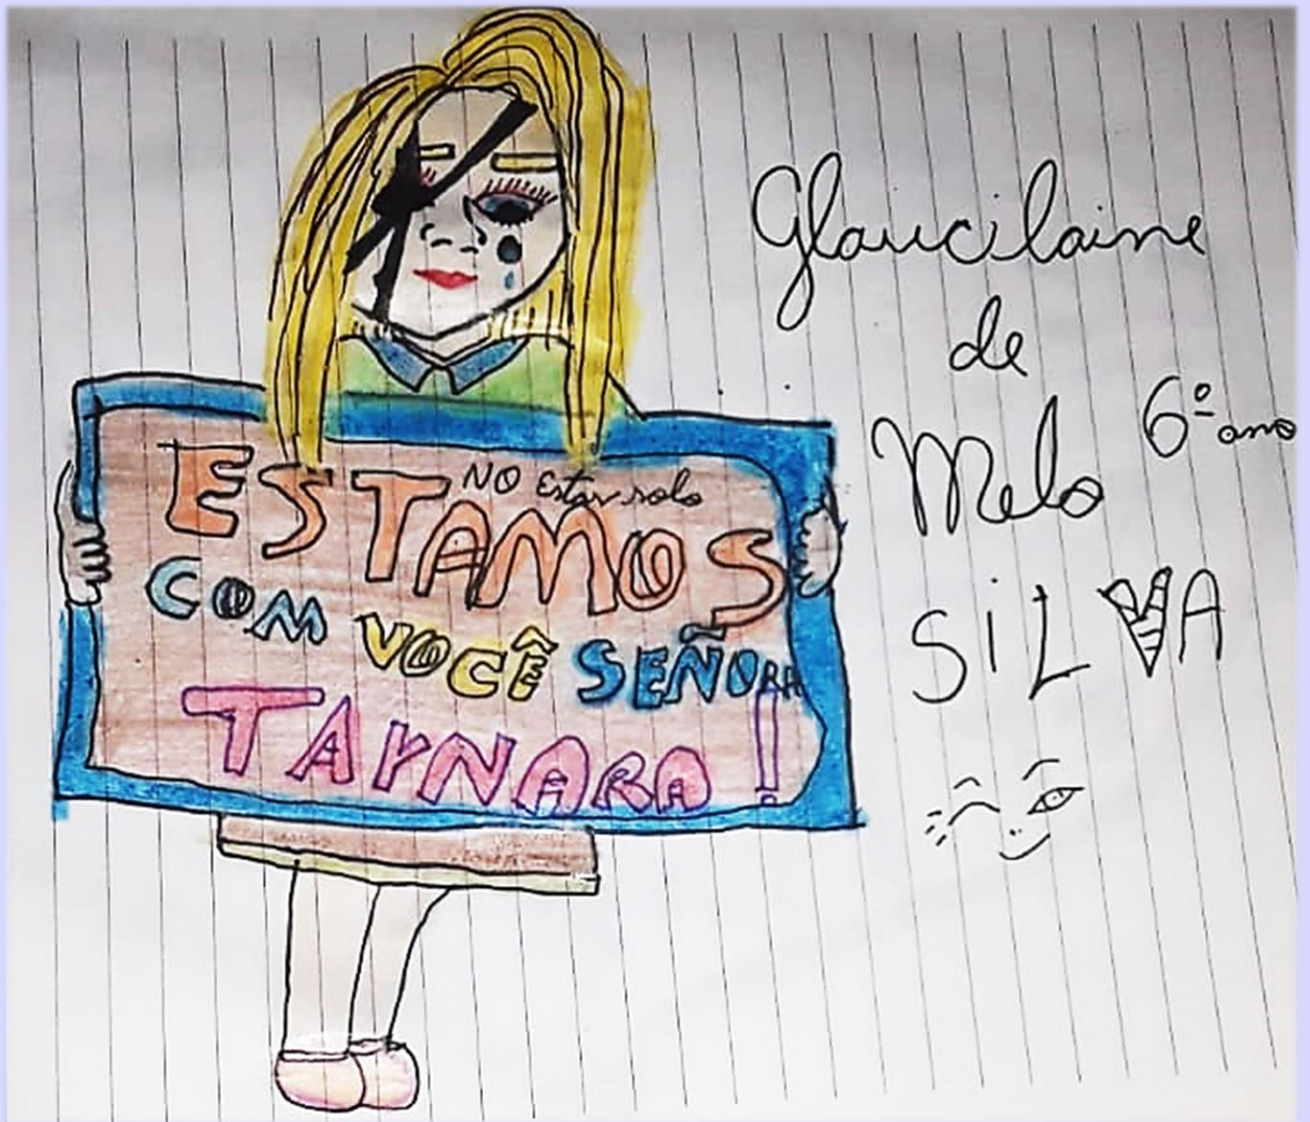 NO Estar solo
ESTAMOS
COM VOCÊ SEÑORA
TAYNARA!
Glaucilaine
de
Melo 6º ano
SiLVA